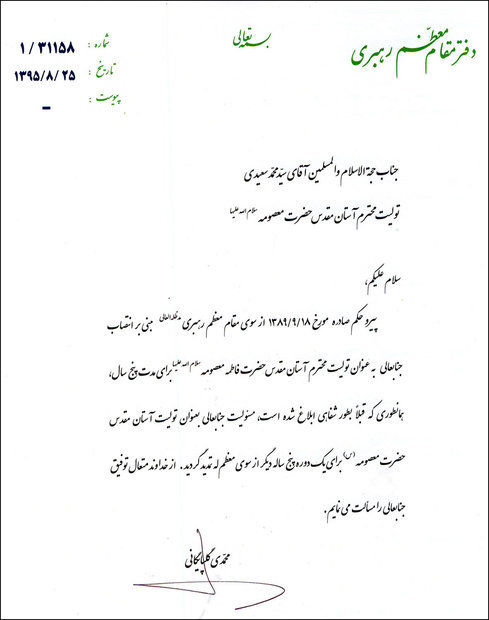 بسمه تعالی
دفتر مقام معظّم رهبری
شماره : ۱ / ۳۱۱۵۸
تاریخ : ۱۳۹۵/۸/۲۵
پیوست : –
جناب حجة الاسلام والمسلمین آقای سیّد محمّد سعیدی
تولیت محترم آستان مقدس حضرت معصومه سلام الله علیها
سلام علیکم،
پیرو حکم صادره مورخ ۱۳۸۹/۹/۱۸ از سوی مقام معظم رهبری مدظله العالی مبنی بر انتصاب
جنابعالی به عنوان تولیت محترم آستان مقدس حضرت فاطمه معصومه سلام الله علیها برای مدت پنج سال،
همانطوری که قبلاً بطور شفاهی ابلاغ شده است، مسئولیت جنابعالی بعنوان تولیت آستان مقدس
حضرت معصومه (س) برای یک دوره پنج ساله دیگر از سوی معظم له تمدید گردید. از خداوند متعال توفیق
جنابعالی را مسألت می نمایم.
محمّدی گلپایگانی